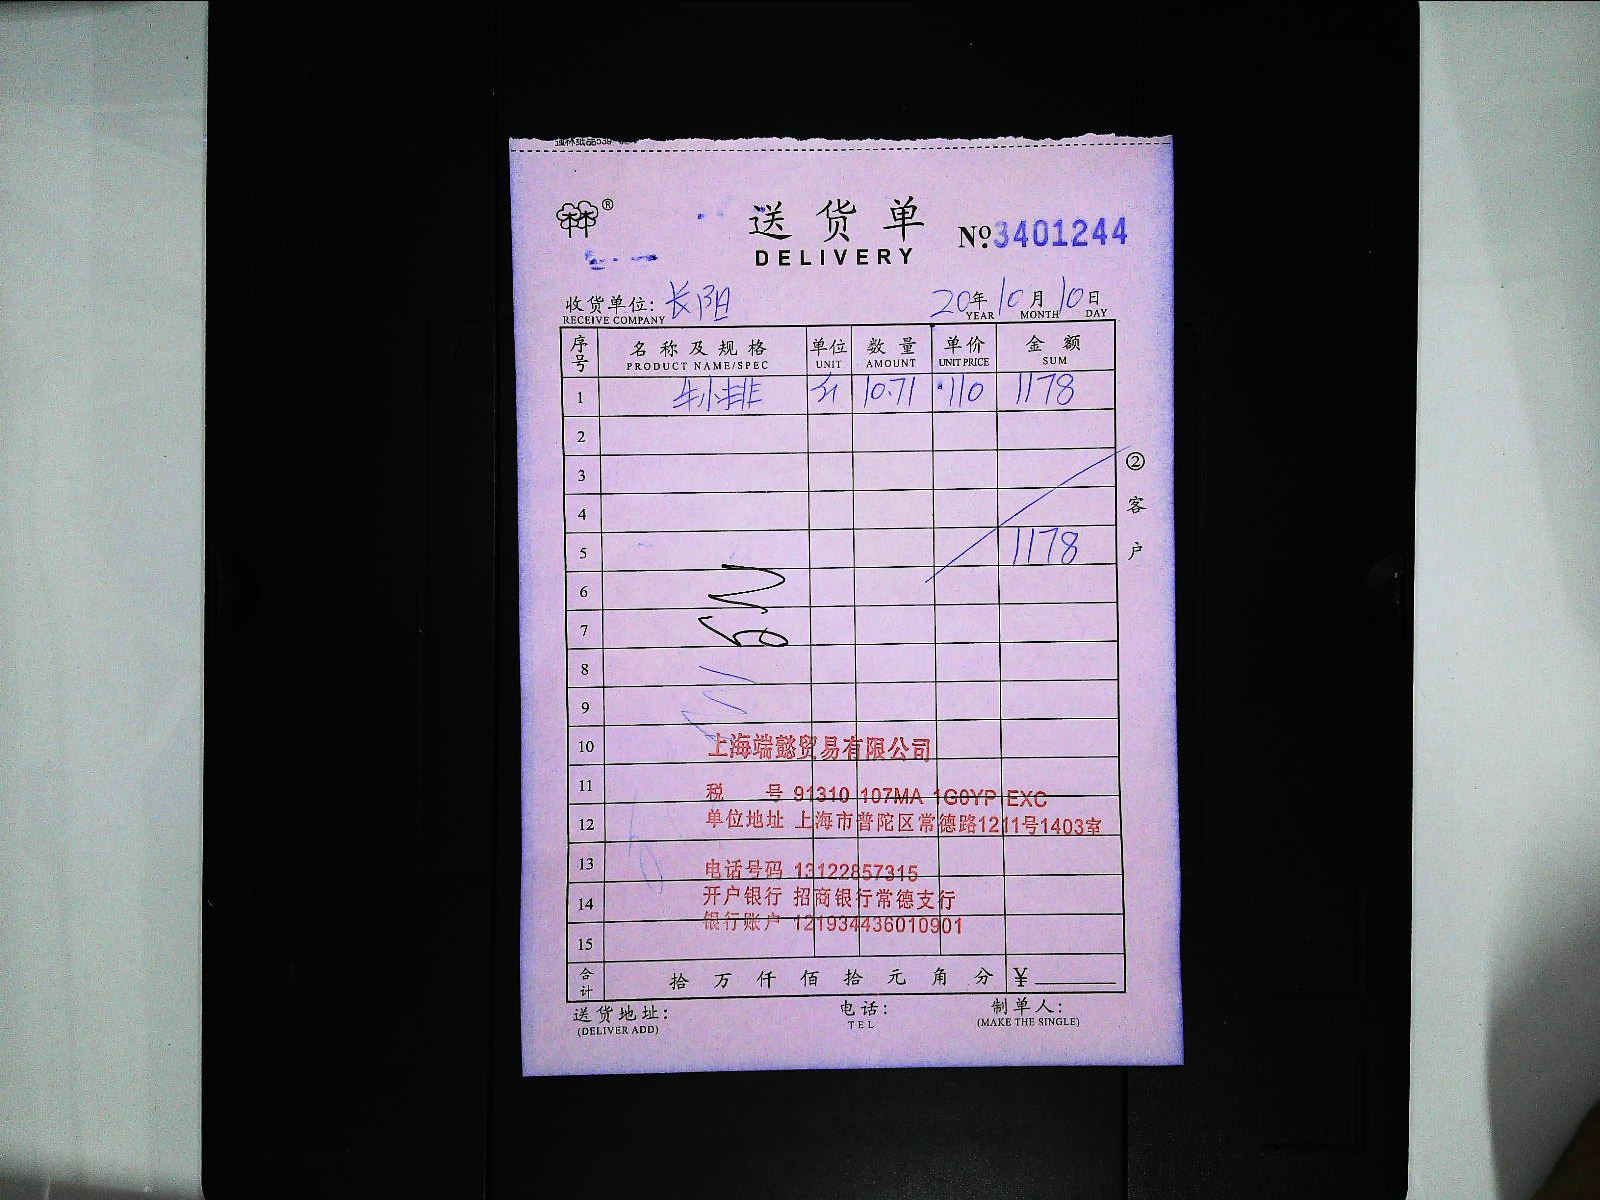 ®
送货单
DELIVERY
№3401244
收货单位: 长阳
RECEIVE COMPANY
20年10月10日
YEAR MONTH DAY
序号 名称及规格 单位 数量 单价 金额
PRODUCT NAME/SPEC UNIT AMOUNT UNIT PRICE SUM
1 牛小排 斤 10.71 110 1178
2
3
4
5 1178
6
7
8
9
10
11
12
13
14
15
② 客户
上海端懿贸易有限公司
税 号 91310 107MA 1G0YP EXC
单位地址 上海市普陀区常德路1211号1403室
电话号码 13122857315
开户银行 招商银行常德支行
银行账户 121934436010901
合计 拾 万 仟 佰 拾 元 角 分 ¥
送货地址: 电话: 制单人:
(DELIVER ADD) TEL (MAKE THE SINGLE)